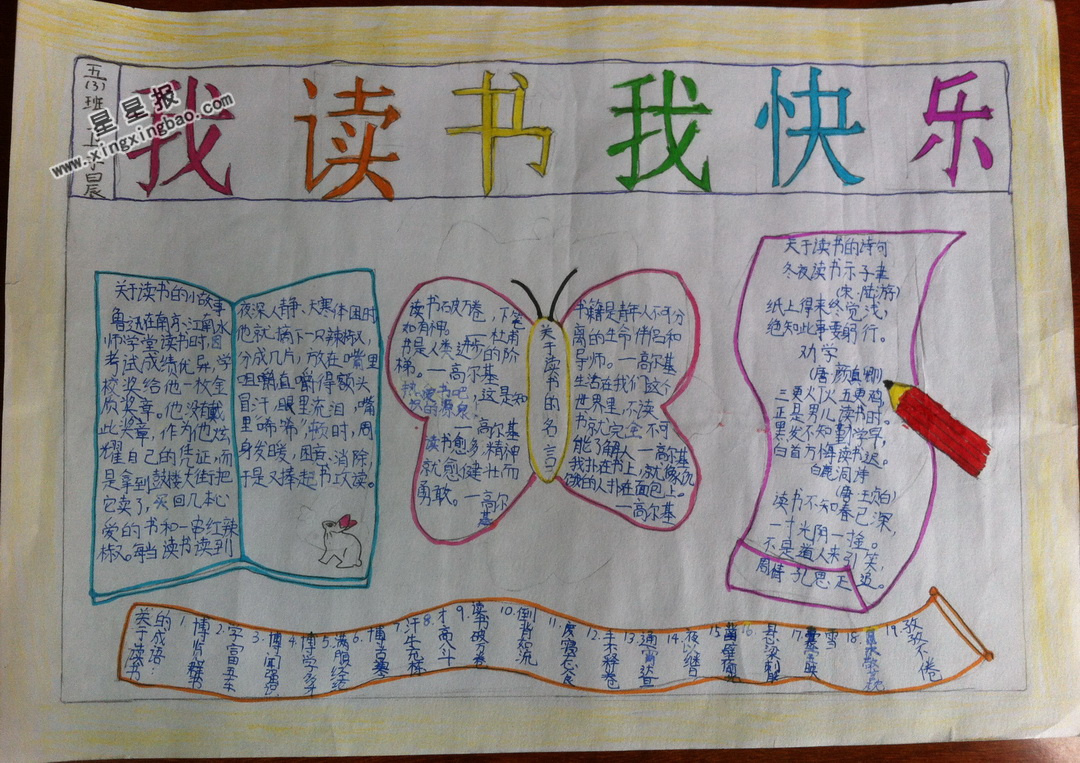 五(3)班
星星报
www.xingxingbao.com
我读书我快乐
关于读书的小故事
鲁迅在南京、江南水
师学堂读书时,因
考试成绩优异,学
校奖给他一枚金
质奖章。他没有戴
此奖章,作为他炫
耀自己的凭证,而
是拿到鼓楼大街把
它卖了,买回几本心
爱的书和一串红辣
椒。每当读书读到
夜深人静、天寒体困时
他就摘下一只辣椒,
分成几片,放在嘴里
咀嚼,直嚼得额头
冒汗,眼里流泪,嘴
里唏唏,顿时,周
身发暖,困意消除,
于是又捧起书攻读。
关于读书的名言
读书破万卷,下笔
如有神。 —杜甫
书是人类进步的阶
梯。—高尔基
热爱书吧,这是知
识的源泉。
—高尔基
读书愈多,精神
就愈健壮而
勇敢。—高尔
基
书籍是青年人不可分
离的生命伴侣和
导师。—高尔基
生活在我们这个
世界里,不读
书就完全不可
能了解人—高尔基
我扑在书上,就像饥
饿的人扑在面包上。
—高尔基
关于读书的诗句
冬夜读书示子聿
(宋·陆游)
纸上得来终觉浅,
绝知此事要躬行。
劝学
(唐·颜真卿)
三更灯火五更鸡,
正是男儿读书时。
黑发不知勤学早,
白首方悔读书迟。
白鹿洞
(唐·王贞白)
读书不知春已深,
一寸光阴一
不是道人来引笑,
周情孔思正追。
关于读书
的成语:
1.博览群书
2.学富五车
3.博闻强
4.博学多才
5.满腹经纶
6.博古
7.汗牛充栋
8.才高八斗
9.读书破万卷
10.倒背如流
11.废寝忘食
12.手不释卷
13.通宵达旦
14.夜以继日
15.凿壁
16.悬梁刺股
17.映雪
18.
19.孜孜不倦